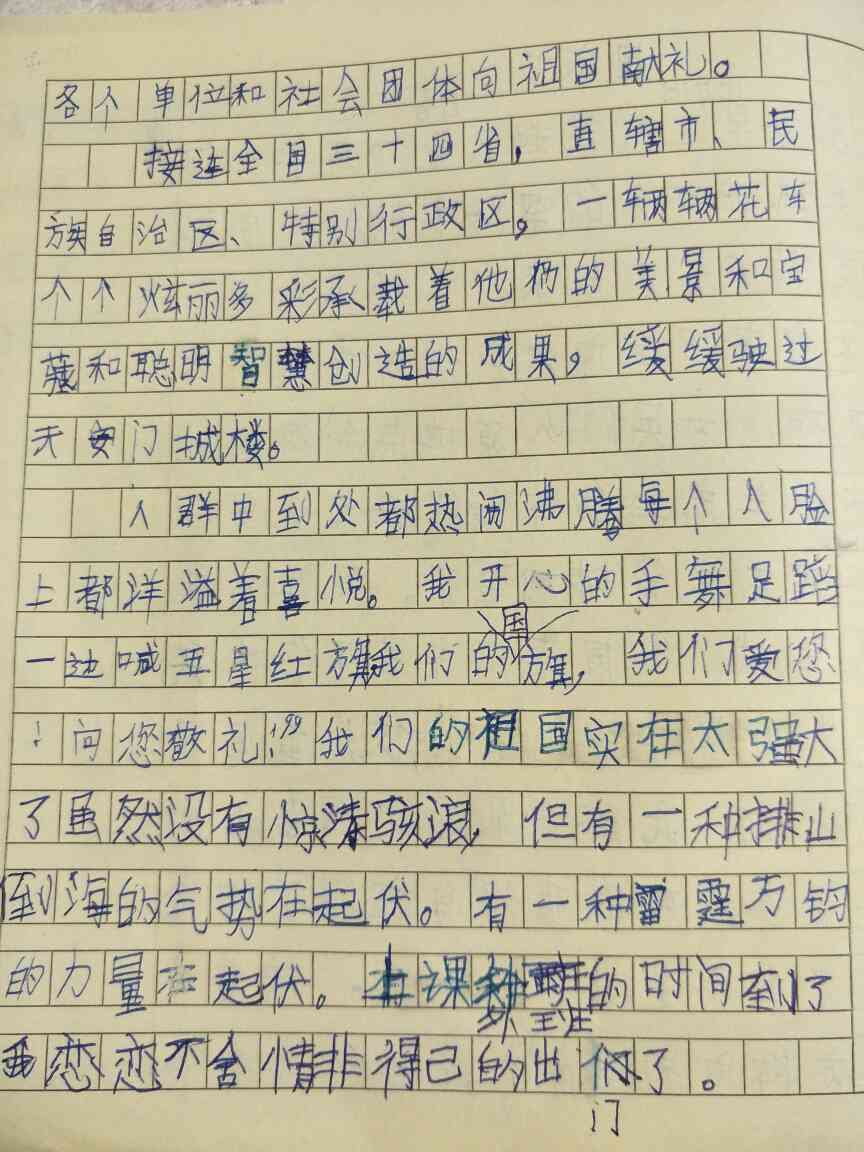 各个单位和社会团体向祖国献礼。
接连全国三十四省，直辖市、民
族自治区、特别行政区，一辆辆花车
个个炫丽多彩承载着他们的美景和宝
藏和聪明智慧创造的成果，缓缓驶过
天安门城楼。
人群中到处都热闹沸腾每个人脸
上都洋溢着喜悦。我开心的手舞足蹈
一边喊五星红旗我们的国旗，我们爱您
！向您敬礼！”我们的祖国实在太强大
了虽然没有惊涛骇浪，但有一种排山
倒海的气势在起伏。有一种雷霆万钧
的力量在起伏。课外班的时间到了
我恋恋不舍情非得已的出门了。